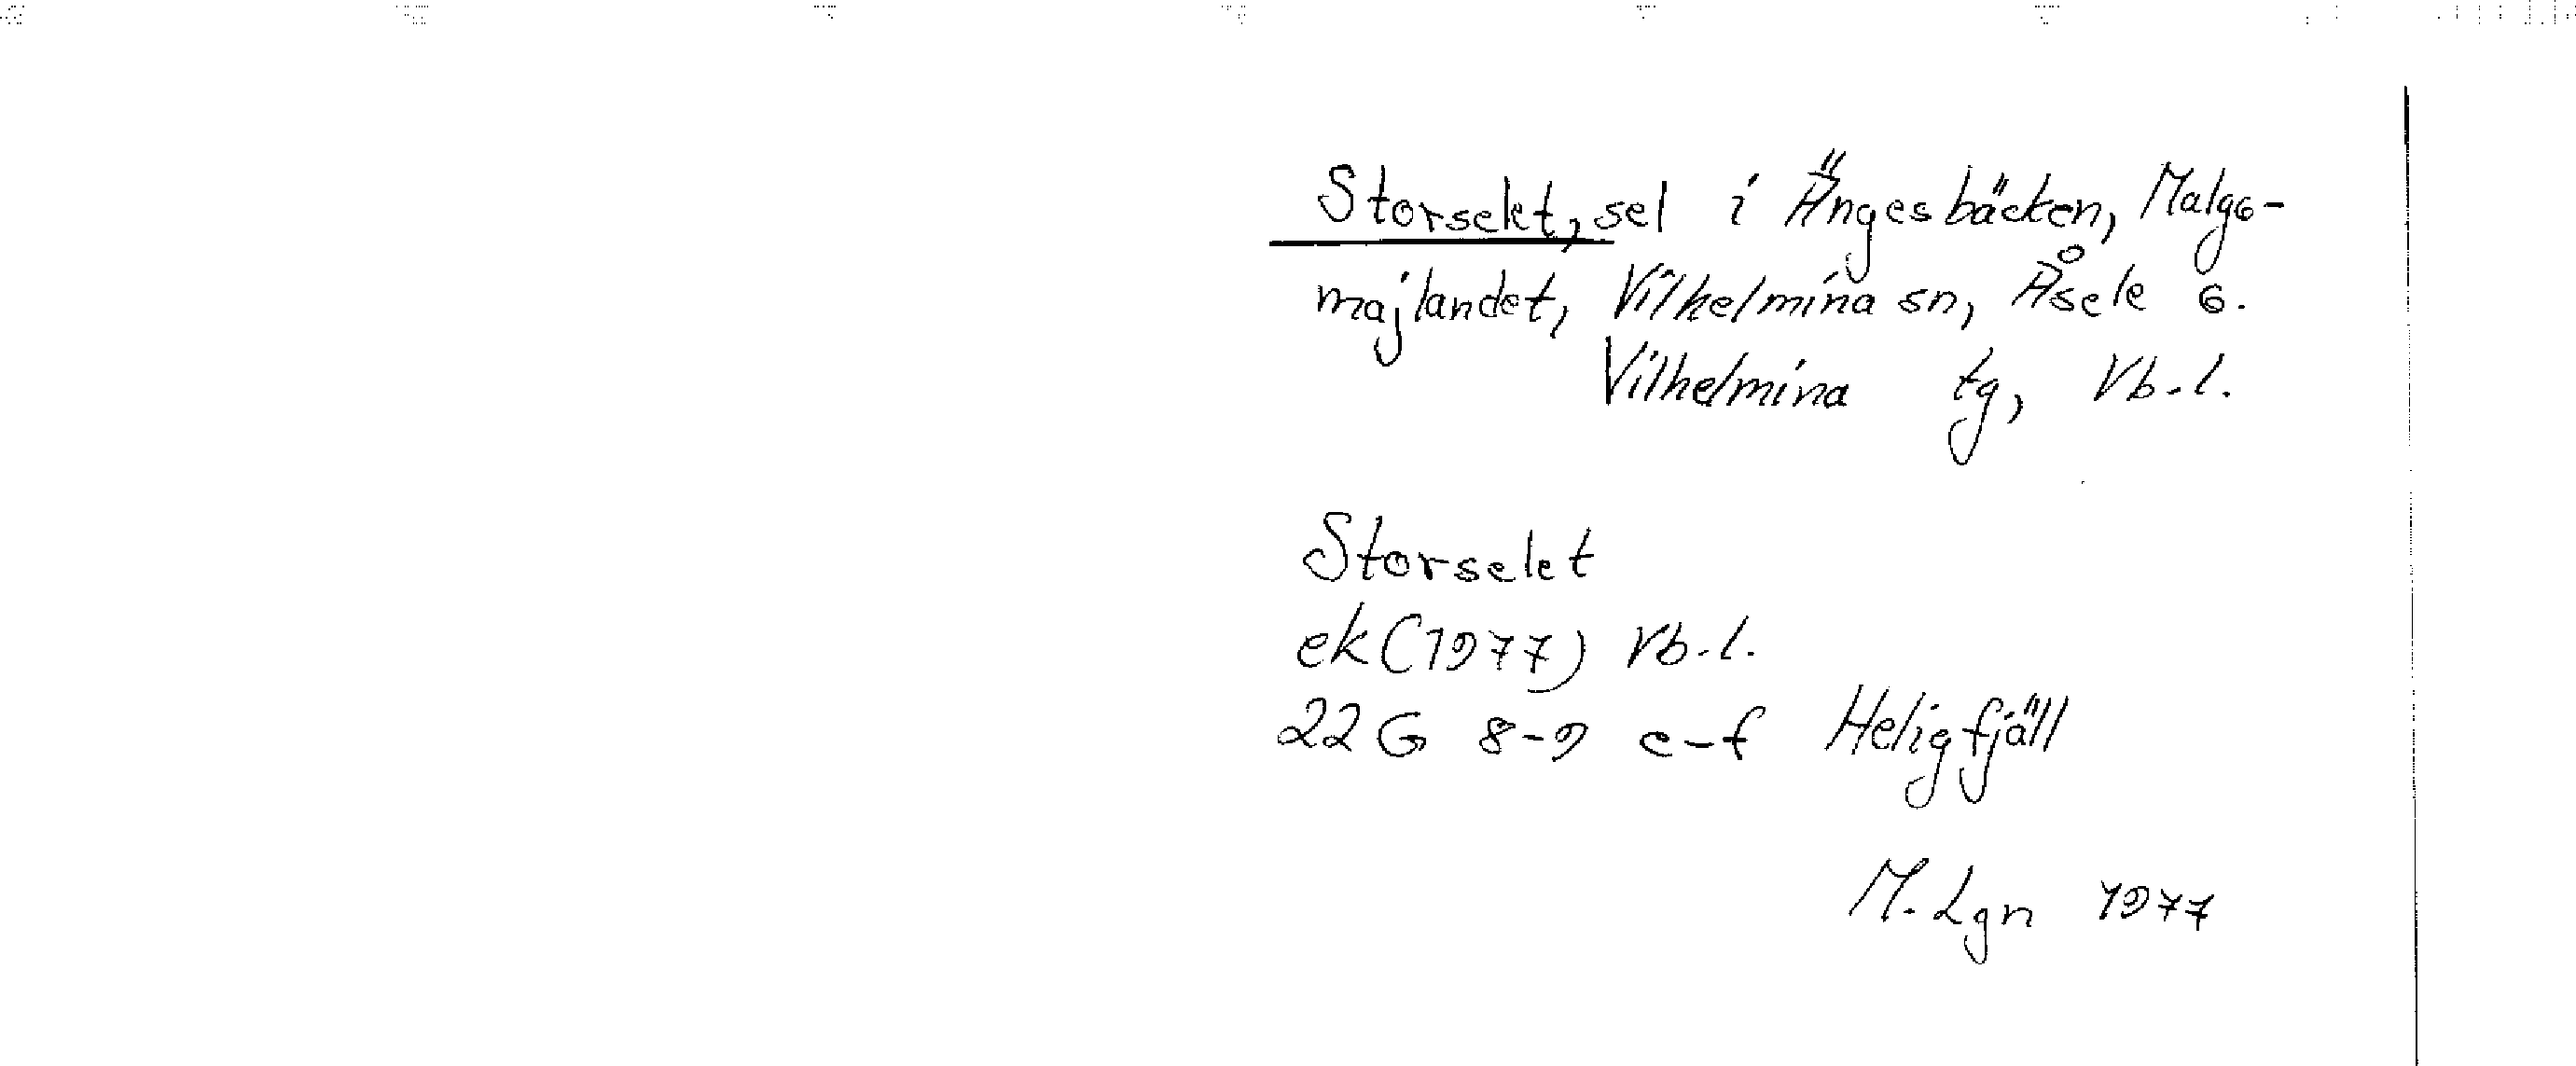 Storselet, sel i Ängesbäcken, Malgo-
majlandet, Vilhelmina sn, Åsele 6.
Vilhelmina tg, Vb. l.
Storselet
ek (1977) Vb. l.
22 G 8-9 e-f Heligfjäll
M. Lgn 1977